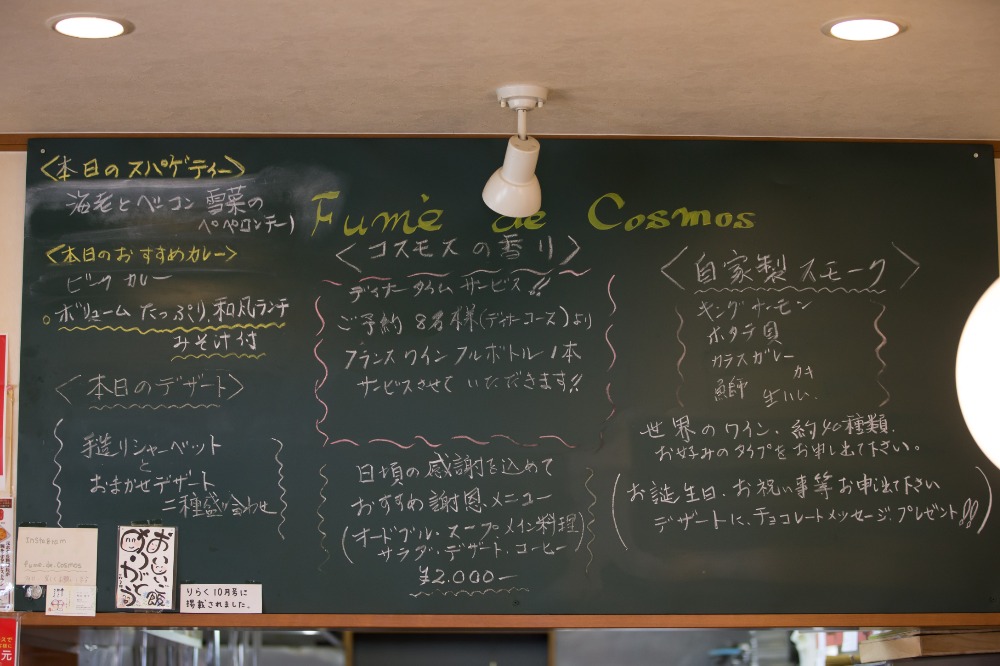 <本日のスパゲティー>
海老とベーコン 雪菜の
ペペロンチーノ
<本日のおすすめカレー>
ビーフカレー
ボリュームたっぷり、和風ランチ
みそ汁付
<本日のデザート>
手造りシャーベット
と
おまかせデザート
二種盛り合わせ
Fumè de Cosmos
<コスモスの香り>
ディナータイムサービス!!
ご予約 8名様(ディナーコース)より
フランスワインフルボトル1本
サービスさせていただきます!!
日頃の感謝を込めて
おすすめ謝恩メニュー
(オードブル・スープ・メイン料理
サラダ・デザート・コーヒー)
¥2.000-
<自家製スモーク>
キングサーモン
ホタテ貝
カラスガレー
カキ
鰤
世界のワイン、約40種類、
お好みのタイプをお申し出て下さい。
(お誕生日、お祝い事等お申出て下さい
デザートに、チョコレートメッセージ、プレゼント!!)
Instagram
fume.de.cosmos
おいしいご飯
ありがとう
りらく10月号に
掲載されました。
元